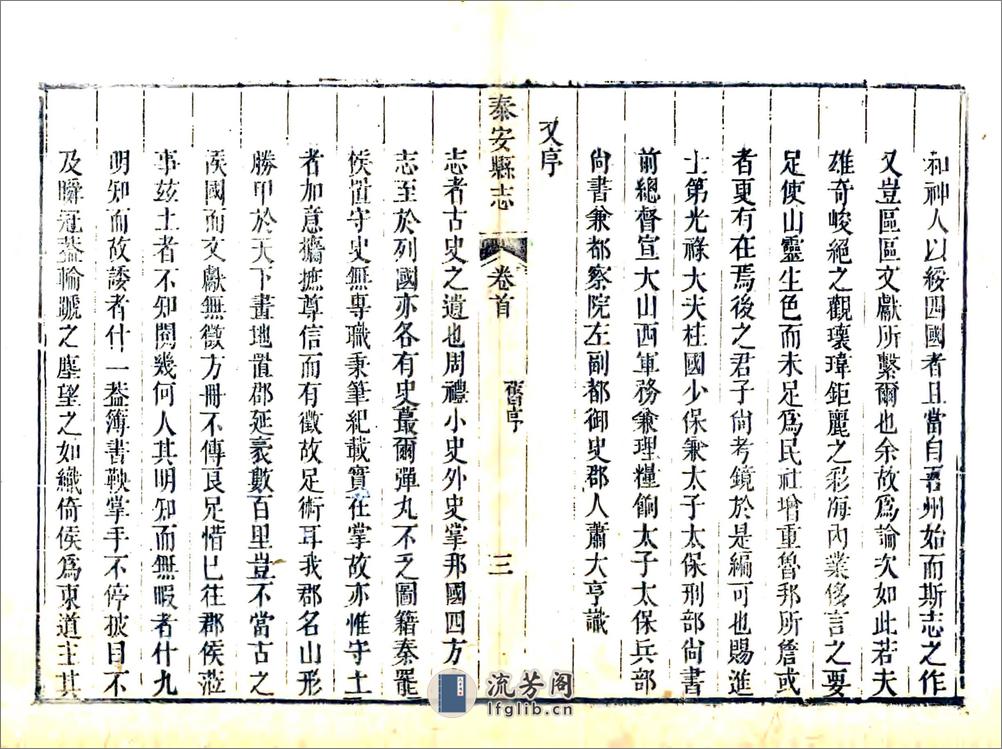 和神人以綏四國者且當自吾州始而斯志之作
又豈區區文獻所繫爾也余故爲論次如此若夫
雄奇峻絕之觀瓌瑋鉅麗之彩海內業侈言之要
足使山靈生色而未足爲民社增重魯邦所詹或
者更有在焉後之君子尙考鏡於是編可也賜進
士第光祿大夫柱國少保兼太子太保刑部尙書
前總督宣大山西軍務兼理糧餉太子太保兵部
尙書兼都察院左副都御史郡人蕭大亨識
又序
泰安縣志 卷首 舊序 三
志者古史之遺也周禮小史外史掌邦國四方
志至於列國亦各有史蕞爾彈丸不乏圖籍秦罷
侯置守史無專職秉筆紀載實在掌故亦惟守土
者加意攟摭尊信而有徵故足術耳我郡名山形
勝甲於天下畫地置郡延袤數百里豈不當古之
侯國而文獻無徵方冊不傳良足惜已往郡侯蒞
事茲土者不知閱幾何人其明知而無暇者什九
明知而故諉者什一葢簿書鞅掌手不停披目不
及瞬冠葢輪蹏之塵望之如織倚侯爲東道主其
流芳阁
lfglib.cn